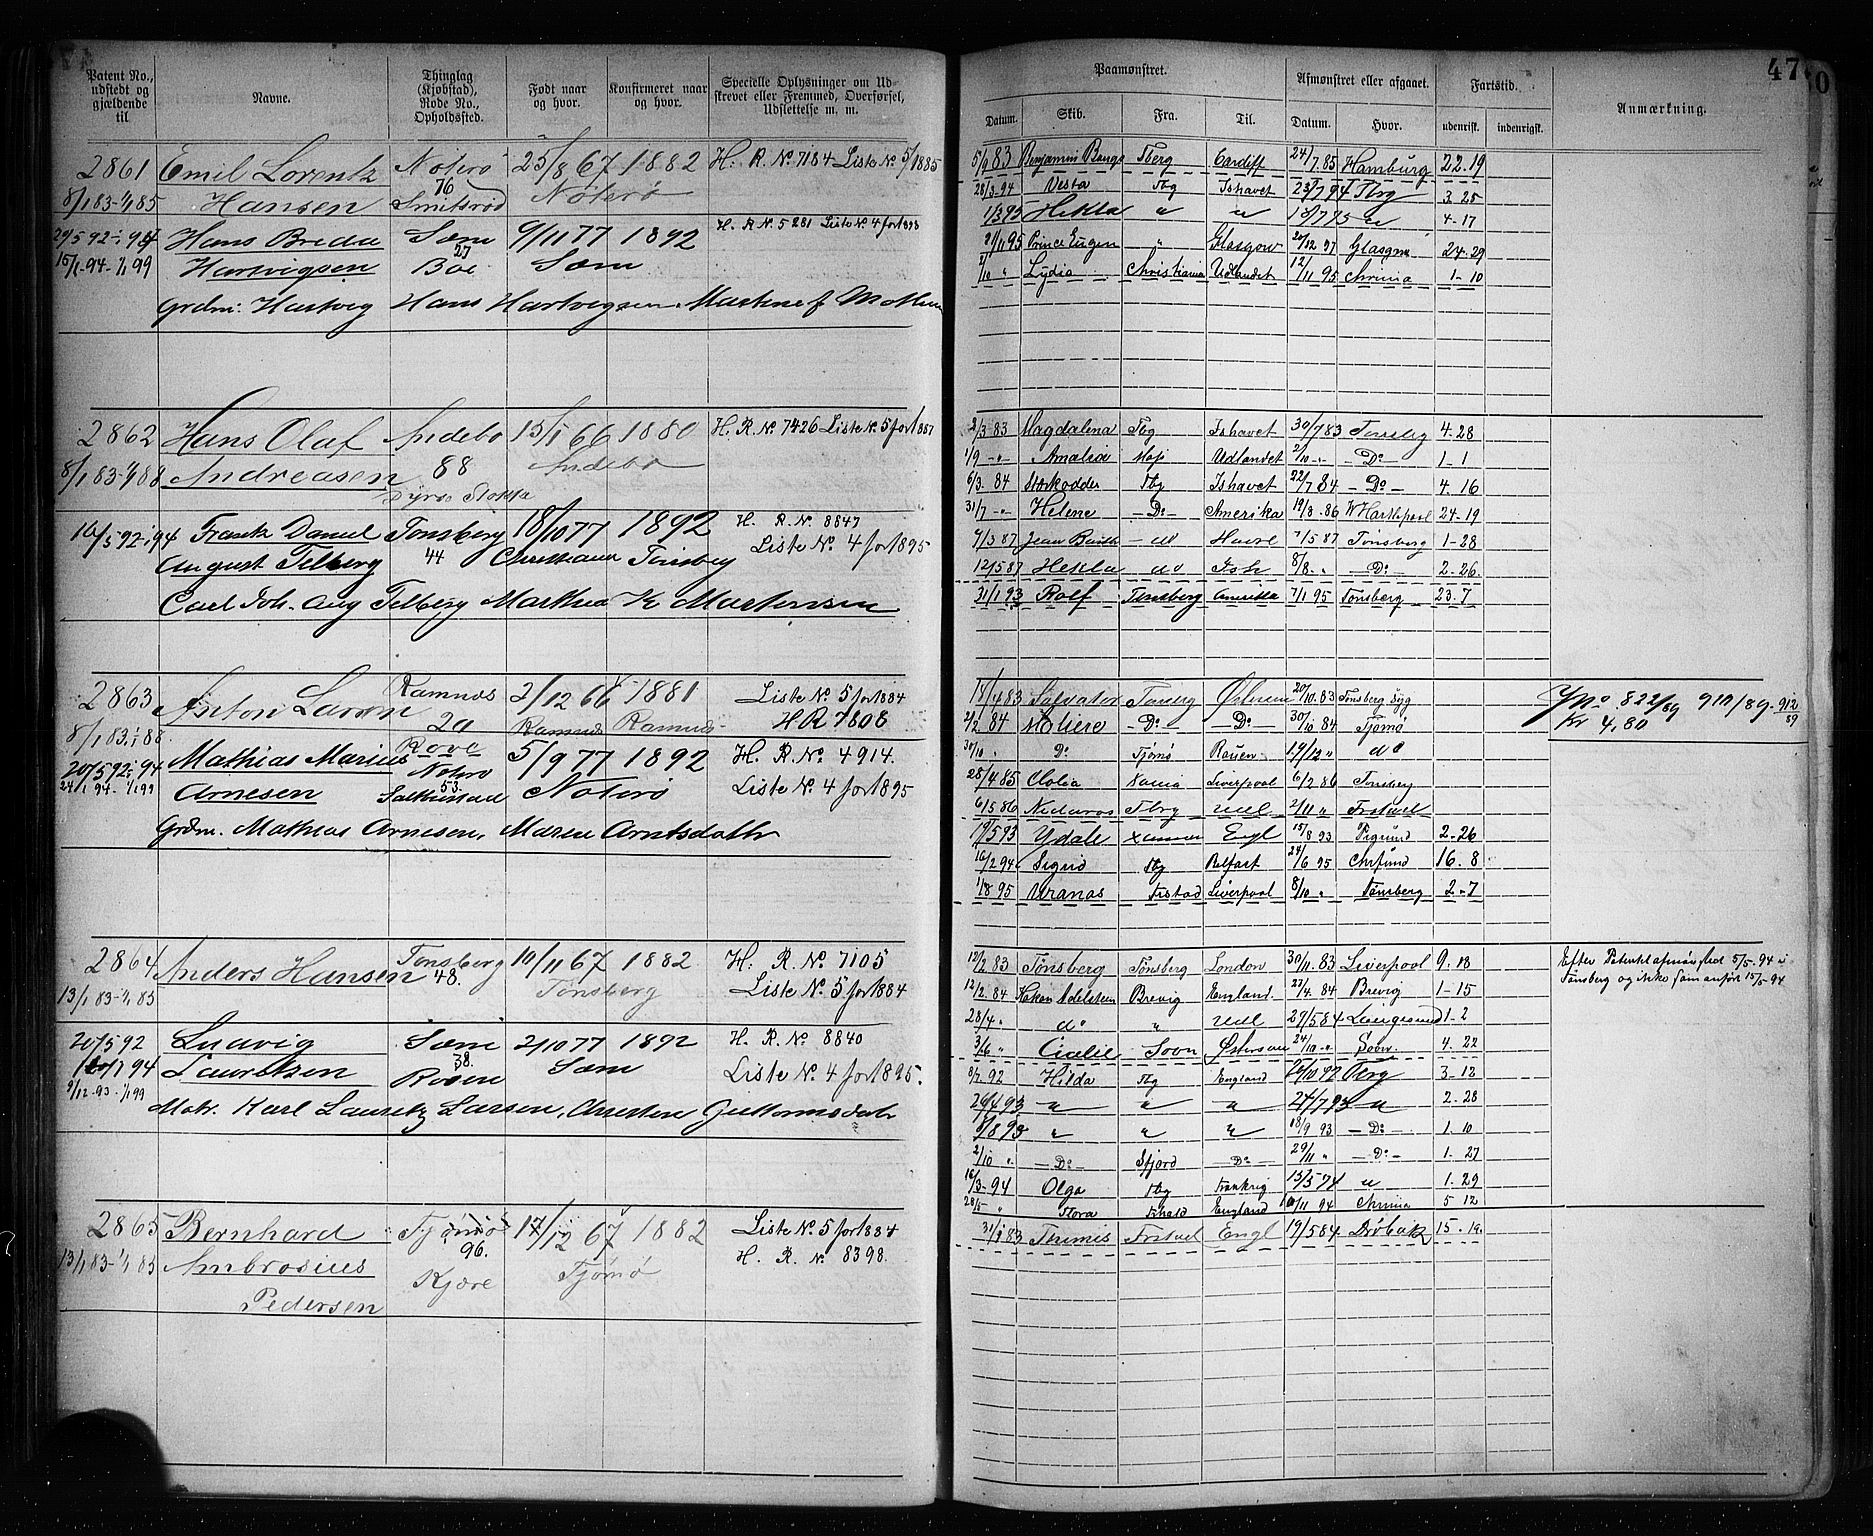 Patent No., udstedt og gjældende til
Navne.
Thinglag (Kjøbstad), Rode No., Opholdssted.
Født naar og hvor.
Konfirmeret naar og hvor.
Specielle Oplysninger om Udskrevet eller Fremmed, Overførsel, Udslettelse m. m.
2861 Emil Lorentz Nøterø 25/8 67 1882 H. R. No 7184 Liste No 5/1885
8/1 83-1/1 85 Hansen 76 Smitsrød Nøterø
29/5 92-1/1 94 Hans Breda Sæm 9/11 77 1892 H. R. No 5281 Liste No. 4 for 1898
15/1-94-1/1 99 Hartvigsen 27 Sæm
Grdm: Hartvig Hans Hartvigsen
2862 Hans Olaf Andebo 15/1 66 1880 H. R. No. 7426 Liste No. 5 for 1887
8/1 83-1/1 88 Andreasen 88 Andebo
16/5 92-1/1 94 Frantz Daniel Tønsberg 18/10 77 1892 H. R. No. 8847
August Telberg 44 Christiania Tønsberg Liste No. 4 for 1895
Carl Joh. Aug Telberg Mathea K Martensen
2863 Anton Larsen Ramnæs 2/12 66 1881 Liste No. 5 for 1884
8/1 83-1/1 88 20 Ramnæs Ramnæs H R 7808
20/5 92-1/1 94 Mathias Marius Rove Nøterø 5/9 77 1892 H. R. No. 4914.
24/1 94-1/1 99 Arnesen 53. Nøterø Liste No. 4 for 1895
Grdm. Mathias Arnesen, Maren Arntsdattr
2864 Anders Hansen Tønsberg 10/11 67 1882 H. R. No. 7105
13/1 83-1/1 85 48. Tønsberg Liste No. 5 for 1884
20/5 92 Ludvig Sæm 2/10 77 1892 H. R. No. 8840
1/1 94 Lauritzen 38. Sæm Liste No. 4 for 1895.
9/12-93-1/1 99 Rosen
Matr. Karl Lauritz Larsen,
2865 Bernhard Tjømø 17/12 67 1882 Liste No. 5 for 1884
13/1 83-1/1 85 Ambrosius 96. Tjømø H. R. No. 8398.
Pedersen Kjære
47
Paamønstret.
Afmønstret eller afgaaet.
Fartstid.
Anmærkning.
Datum. Skib. Fra. Til. Datum. Hvor. udenrigst. indenrigst.
83 Benjamin Bangs Tberg Cardiff 24/7 85 Hamburg 22-19
28/3-94 Vesta Tbg Ishavet 23/7 94 Tbrg 3 25
1/3 95 Hekla " " " 4-17
95 Prince Eugen " Glasgow 97 Glasgow 24-29
2/10 " Lydia Christiania Udlandet 12/11 95 Chrnia 1-10
2/3 83 Magdalena Tbg Ishavet 30/7 83 Tønsbg 4-28
1/9 -"- Amalia Udlandet 2/10 -"- -Do- 1-1
6/3 84 Stærkodder Tbg Ishavet 22/7 84 -Do- 4. 16
31/7 -"- Helene -Do- Amerika 19/8 86 W Hartlepool 24-19
87 Jean -do Havre 7/5 87 Tønsberg 1-28
12/5 87 Hekla do Ish 8/8 " -Do- 2-26
31/1 93 Rolf Tønsberg Amerika 7/1 95 Tønsberg 23-7
18/4 83 Salvator Tønsbg 20/10 83 Tønsberg Syg J No 822/89 910/89-912/89
2/2 84 Moliere -Do- -Do- 30/10 84 Tjømø Kr 4,80
30/10 " Do Tjømø Rouen 19/12 " do
25/4 85 Clolia Liverpool 6/2 86 Tønsberg
6/5 86 Nidaros Tbrg Udl 2/11 " Frstad
19/5 93 Ydale Engl 15/8 93 2-26
16/2 94 Sigrid Tbg Belfast 24/6 95 16-8
1/8 95 Uranas Frstad Liverpool 8/10 " Tønsberg 2-7
12/2 83 Tønsberg Tønsberg London 30/11 83 Liverpool 9. 18 Efter Patentet afmønstret 5/5-94 i
12/2 84 Hakon Adelsteen Brevig England. 23/4 84 Brevig 1-15 Tønsberg og ikke som anført 15/5-94
28/4 " do " Udl 29/5 84 Langesund 1-2
3/6 " Cicelie 24/10 -"- 4. 22
8/7 92 Hilda Tbg England 92 Tbrg 3-12
93 " " " 24/7 93 " 2-28
8/8 93 " " " 18/9 93 -Do- 1. 10
2/10 " -Do- Sfjord -Do- 29/11 " -Do- 1-27
16/3-94 Olga Tbg Frankrig " 1-29
28/5 " Flora Frhald England 94 Chrnia 5 12
83 Themis Frstad Engl 19/5 84 Drøbak 15-19